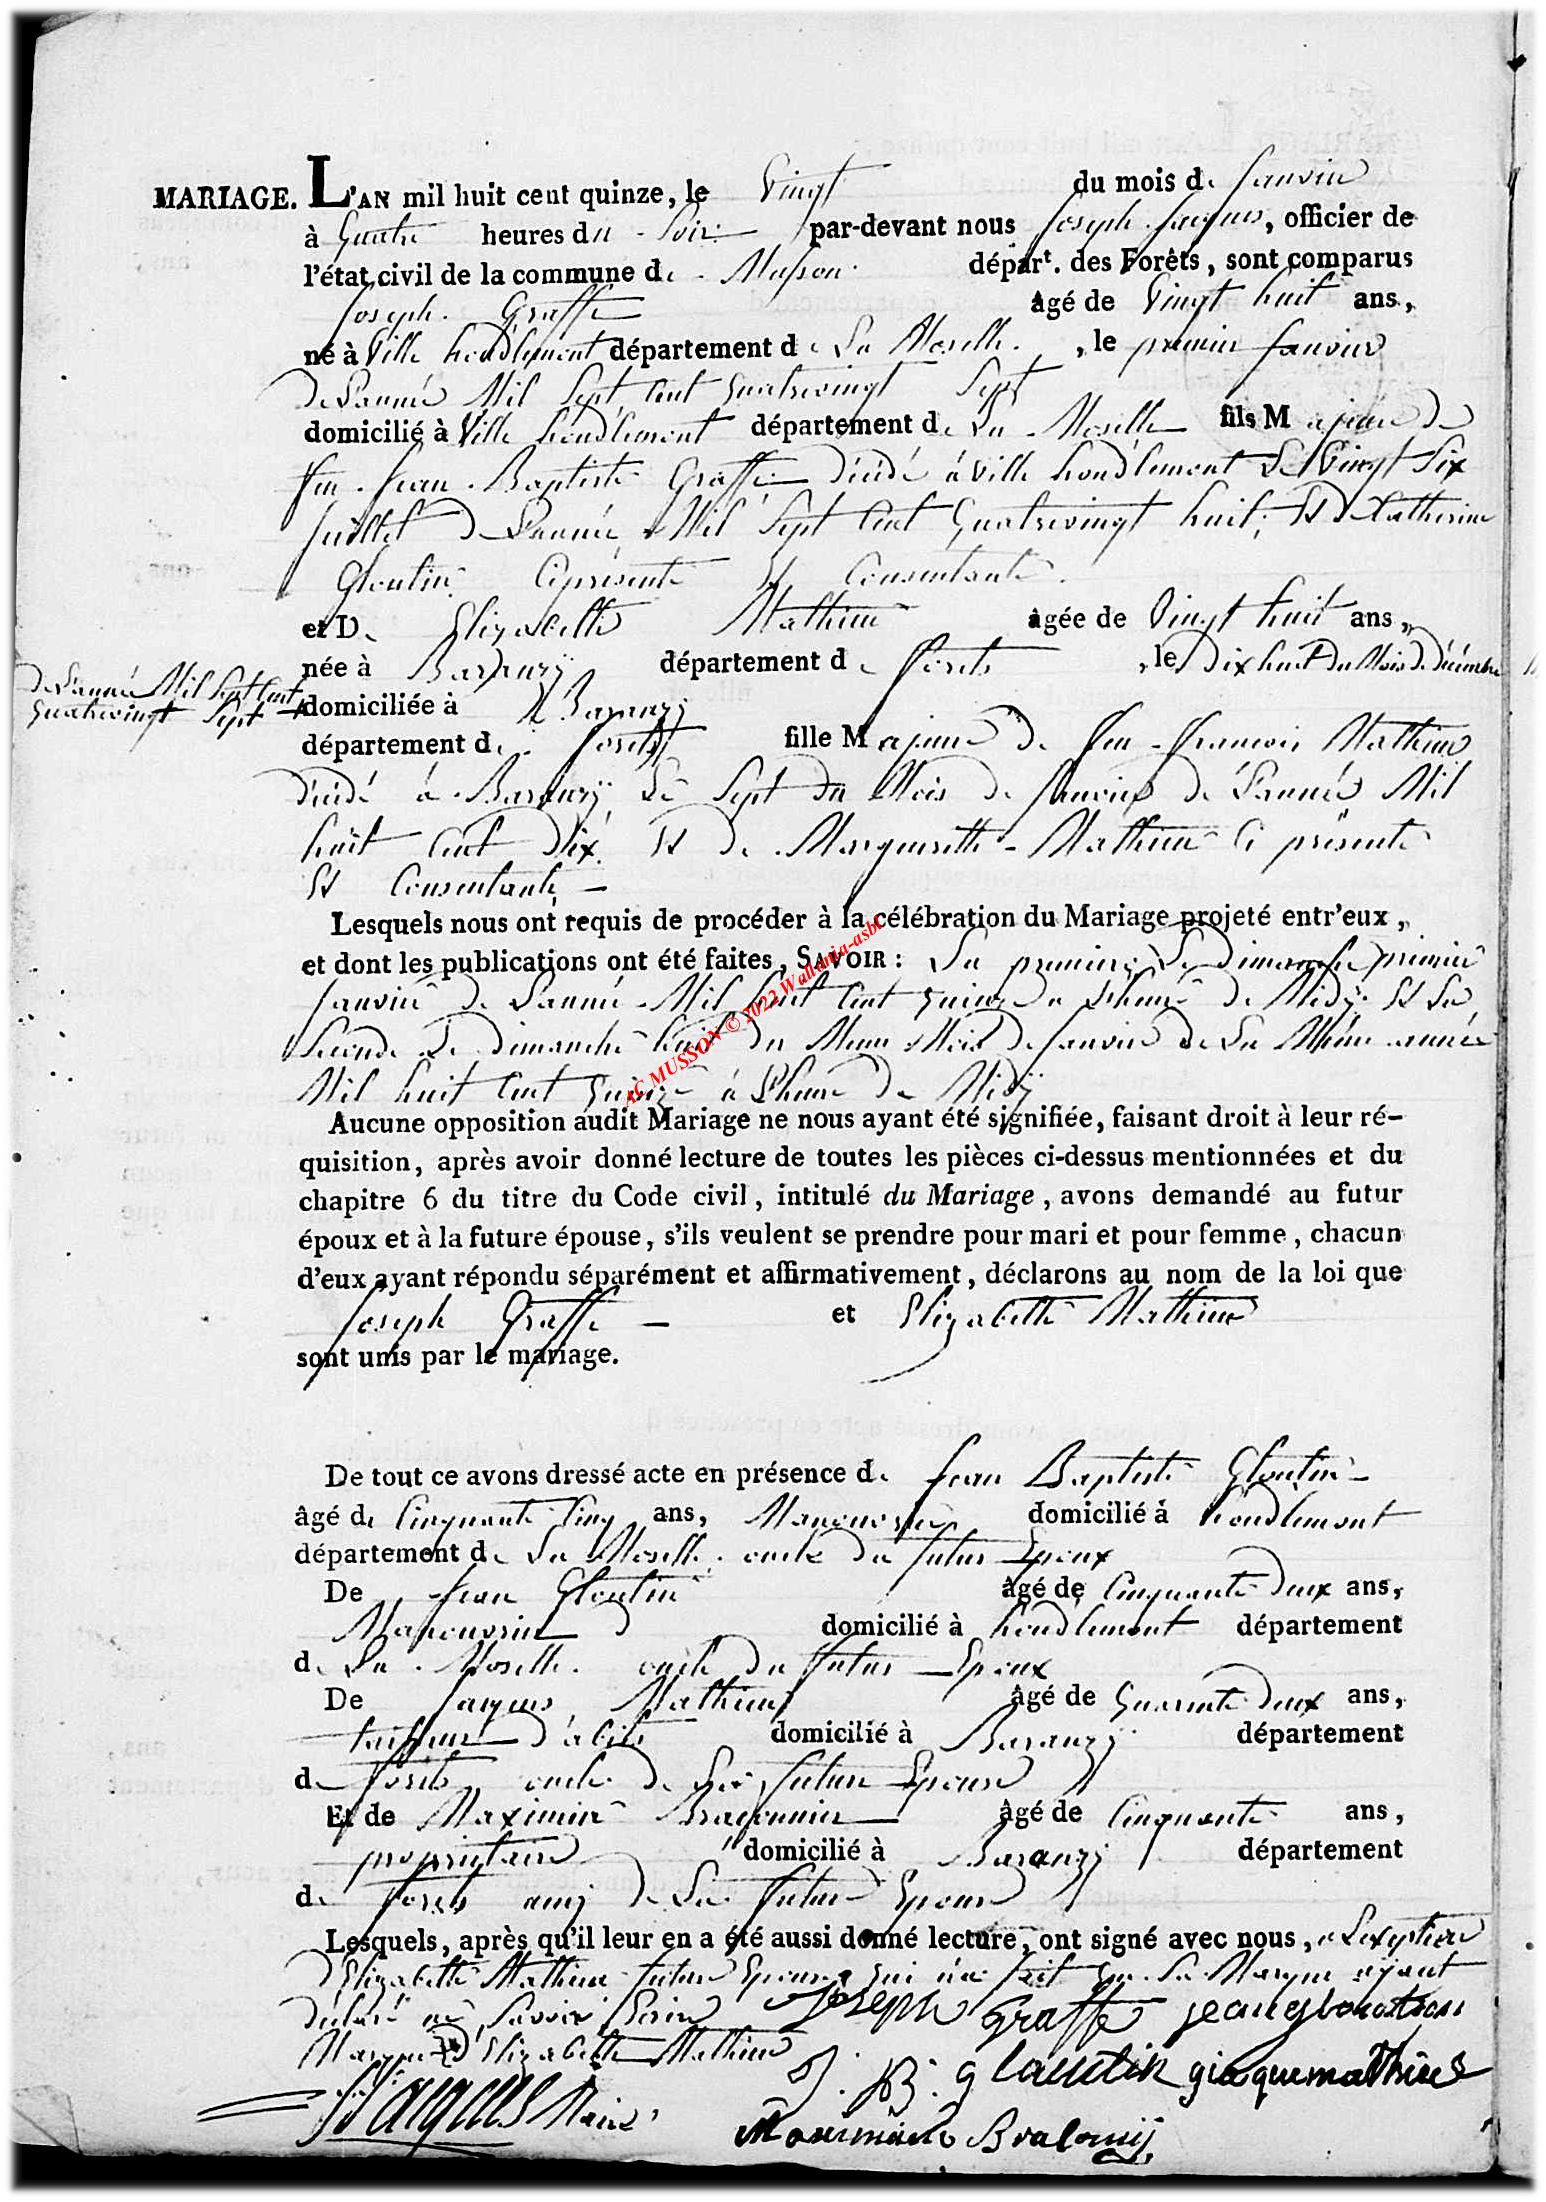 MARIAGE. L'AN mil huit cent quinze, le Vingt du mois de Janvier
à Quatre heures du Soir par-devant nous Joseph Jacques, officier de
l'état civil de la commune de Musson départ. des Forêts, sont comparus
Joseph Graffe âgé de Vingt huit ans,
né à Ville houdlémont département de La Moselle, le premier Janvier
de L'année Mil Sept Cent Quatrevingt Sept
domicilié à Ville houdlemont département de La Moselle fils Majeur de
feu Jean Baptiste Graffe décédé à Ville houdlemont Le Vingt Six
Juillet de L'année Mil Sept Cent Quatrevingt huit, Et de Catherine
Gloutin Ciprésente Et Consentante.
et De Elizabeth Mathieu âgée de Vingt huit ans,
née à Baranzÿ département de forêts, le Dix huit du Mois de décembre
de L'année Mil Sept Cent
Quatrevingt Sept
domiciliée à Baranzÿ
département de forêts fille Majeure de feu francois Mathieu
décédé à Baranzÿ Le Sept du Mois de Janvier de L'année Mil
huit Cent Dix Et de Margueritte Mathieu Ci présente
Et Consentante
Lesquels nous ont requis de procéder à la célébration du Mariage projeté entr'eux,
et dont les publications ont été faites, SAVOIR : La premiere Le Dimanche premier
Janvier de L'année Mil huit Cent quinze a L'heure de Midÿ Et La
Seconde Le Dimanche huit du Meme Mois de Janvier de La Même année
Mil huit Cent quinze à L'heure de Midÿ
AC MUSSON © 2022 Wallonia-asbl
Aucune opposition audit Mariage ne nous ayant été signifiée, faisant droit à leur ré-
quisition, après avoir donné lecture de toutes les pièces ci-dessus mentionnées et du
chapitre 6 du titre du Code civil, intitulé du Mariage, avons demandé au futur
époux et à la future épouse, s'ils veulent se prendre pour mari et pour femme, chacun
d'eux ayant répondu séparément et affirmativement, déclarons au nom de la loi que
Joseph Graffe et Elizabeth Mathieu
sont unis par le mariage.
De tout ce avons dressé acte en présence de Jean Baptiste Gloutin
âgé de Cinquante Cinq ans, Manouvrier domicilié à houdlemont
département de La Moselle oncle du futur Epoux
De Jean Gloutin âgé de Cinquante deux ans,
Manouvrier domicilié à houdlemont département
de La Moselle oncle du futur Epoux
De Jacques Mathieu âgé de Quarente deux ans,
tailleur d'abits domicilié à Baranzÿ département
de forêts oncle de La future Epouse
Et de Maximin âgé de Cinquante ans,
propriétaire domicilié à Baranzÿ département
de forets amÿ de La future Epouse
Lesquels, après qu'il leur en a été aussi donné lecture, ont signé avec nous, a L'exeption
d'Elizabeth Mathieu future Epouse qui n'a fait que Sa Marque ayant
déclaré ne Savoir Ecrire Joseph Graffe jean
Marque d'Elizabeth Mathieu
J. B. glautin giaquemathieu
Jacques Maire